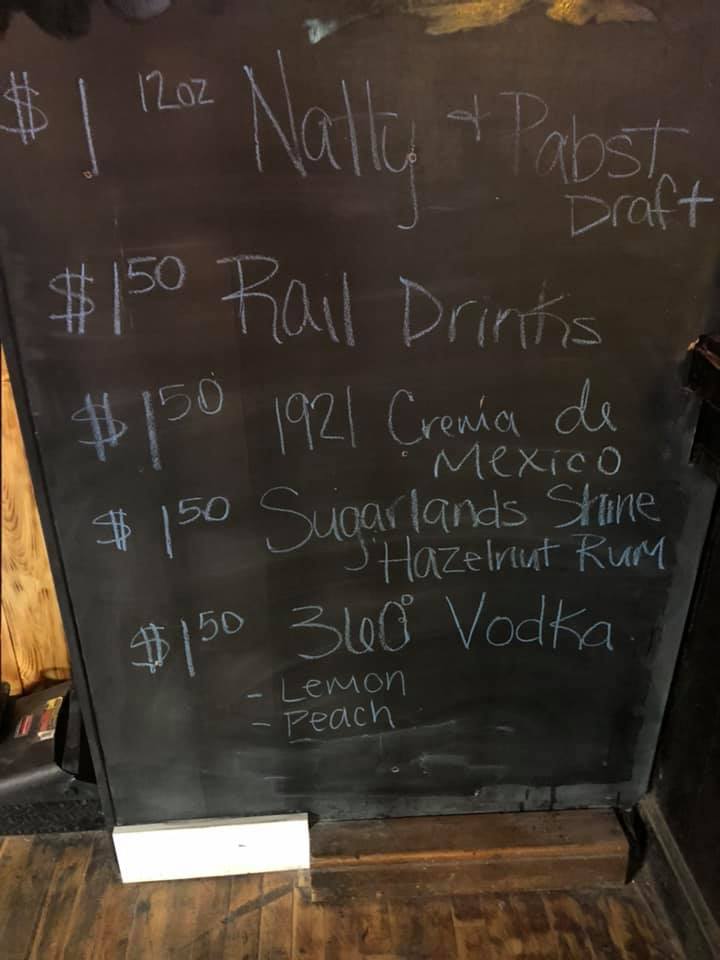 $1 12oz Natty & Pabst
Draft
$1.50 Rail Drinks
$1.50 1921 Crema de
Mexico
$1.50 Sugarlands Shine
Hazelnut Rum
$1.50 360° Vodka
- Lemon
- Peach